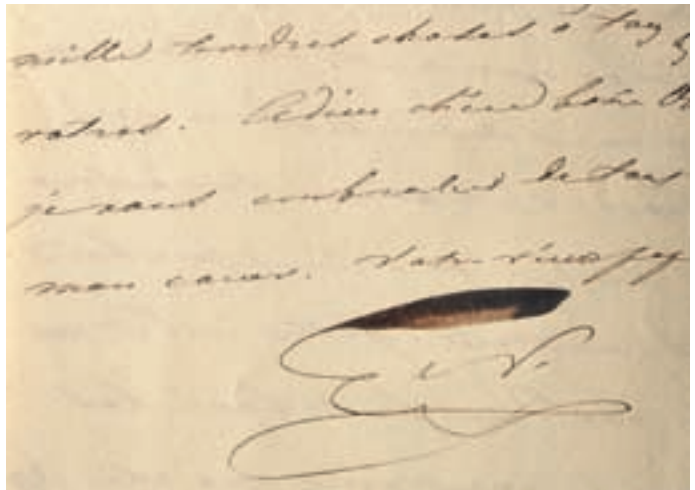 mille tendres choses à tous
votres. Adieu chère bonne
je vous embrasse de tous
mon coeur. Votre vieux
E. V.